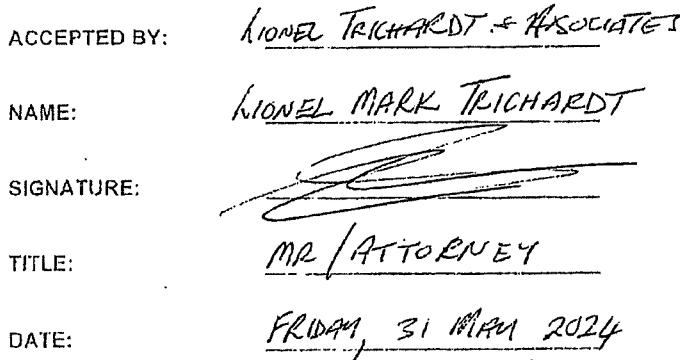 ACCEPTED BY: LIONEL TRICHARDT & ASSOCIATES
NAME: LIONEL MARK TRICHARDT
SIGNATURE:
TITLE: MR / ATTORNEY
DATE: FRIDAY, 31 MAY 2024